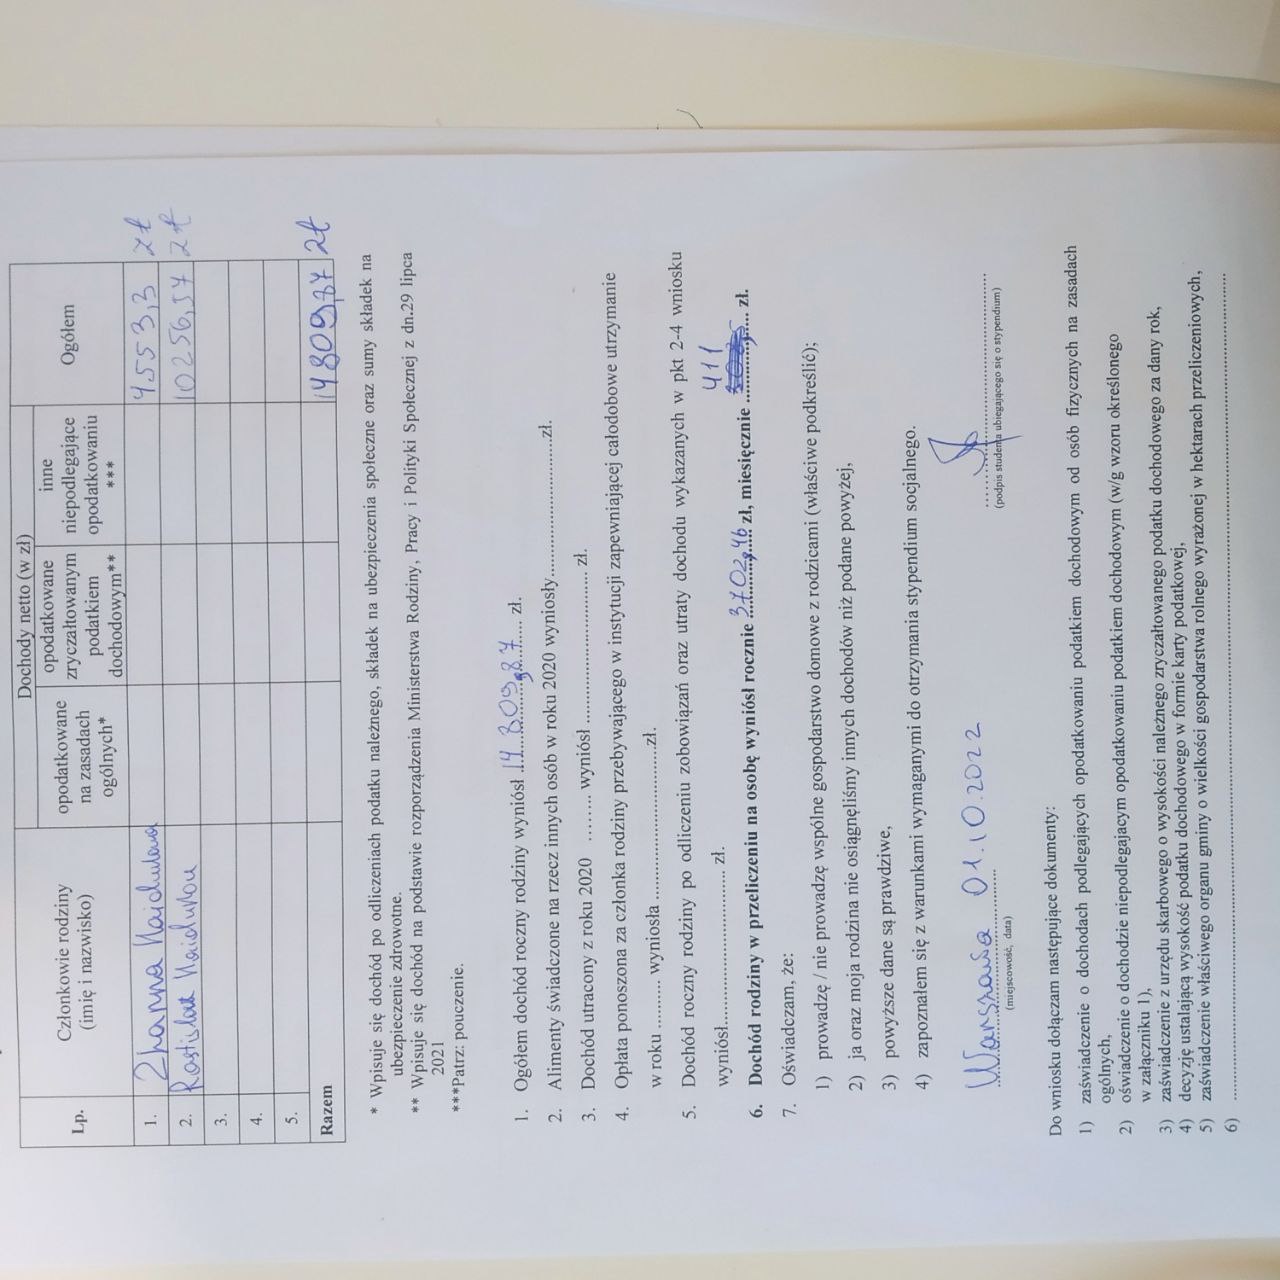 Lp.
Członkowie rodziny
(imię i nazwisko)
Dochody netto (w zł)
opodatkowane
na zasadach
ogólnych*
opodatkowane
zryczałtowanym
podatkiem
dochodowym**
inne
niepodlegające
opodatkowaniu
***
Ogółem
1. Zhanna 4553,3 zł
2. 10256,57 zł
3.
4.
5.
Razem 14809,87 zł
* Wpisuje się dochód po odliczeniach podatku należnego, składek na ubezpieczenia społeczne oraz sumy składek na
ubezpieczenie zdrowotne.
** Wpisuje się dochód na podstawie rozporządzenia Ministerstwa Rodziny, Pracy i Polityki Społecznej z dn.29 lipca
2021
***Patrz: pouczenie.
1. Ogółem dochód roczny rodziny wyniósł 14.809,87 zł.
2. Alimenty świadczone na rzecz innych osób w roku 2020 wyniosły..............................zł.
3. Dochód utracony z roku 2020 ........ wyniósł .............................. zł.
4. Opłata ponoszona za członka rodziny przebywającego w instytucji zapewniającej całodobowe utrzymanie
w roku ......... wyniosła ..............................zł.
5. Dochód roczny rodziny po odliczeniu zobowiązań oraz utraty dochodu wykazanych w pkt 2-4 wniosku
wyniósł.............................. zł.
6. Dochód rodziny w przeliczeniu na osobę wyniósł rocznie 3702,46 zł, miesięcznie 411 zł.
7. Oświadczam, że:
1) prowadzę / nie prowadzę wspólne gospodarstwo domowe z rodzicami (właściwe podkreślić);
2) ja oraz moja rodzina nie osiągnęliśmy innych dochodów niż podane powyżej,
3) powyższe dane są prawdziwe,
4) zapoznałem się z warunkami wymaganymi do otrzymania stypendium socjalnego.
Warszawa 01.10.2022
(miejscowość, data)
(podpis studenta ubiegającego się o stypendium)
Do wniosku dołączam następujące dokumenty:
1) zaświadczenie o dochodach podlegających opodatkowaniu podatkiem dochodowym od osób fizycznych na zasadach
ogólnych,
2) oświadczenie o dochodzie niepodlegającym opodatkowaniu podatkiem dochodowym (w/g wzoru określonego
w załączniku 1),
3) zaświadczenie z urzędu skarbowego o wysokości należnego zryczałtowanego podatku dochodowego za dany rok,
4) decyzję ustalającą wysokość podatku dochodowego w formie karty podatkowej,
5) zaświadczenie właściwego organu gminy o wielkości gospodarstwa rolnego wyrażonej w hektarach przeliczeniowych,
6) ..............................